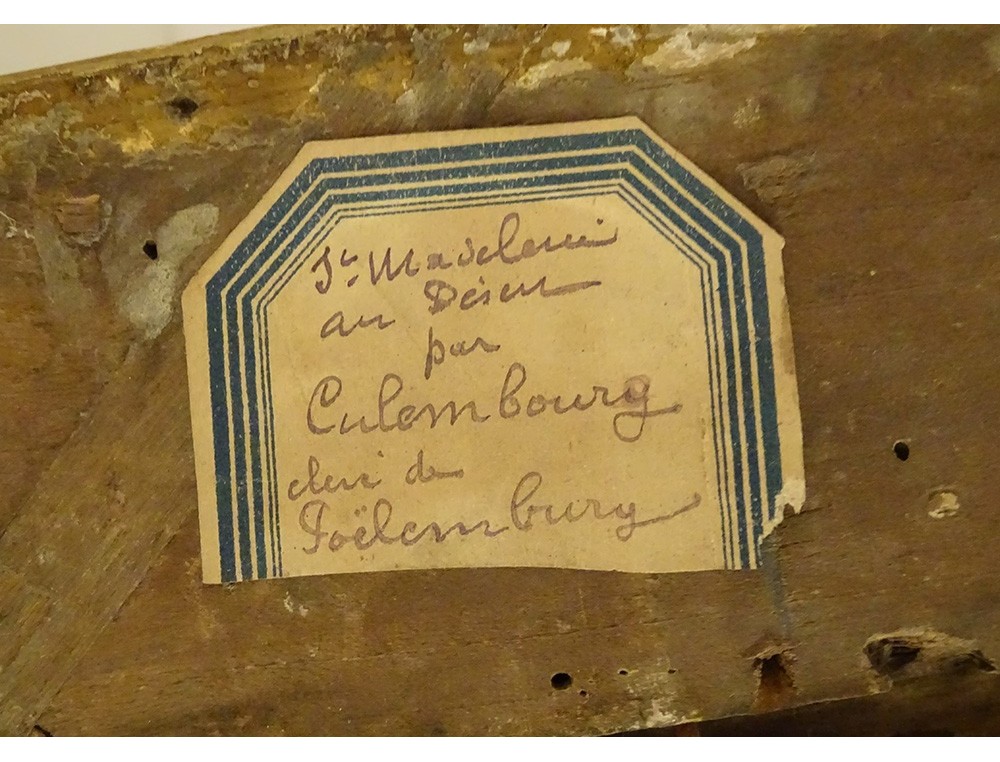 Ste Madeleine
au Désert
par
Culembourg
élevé de
Poëlemburg